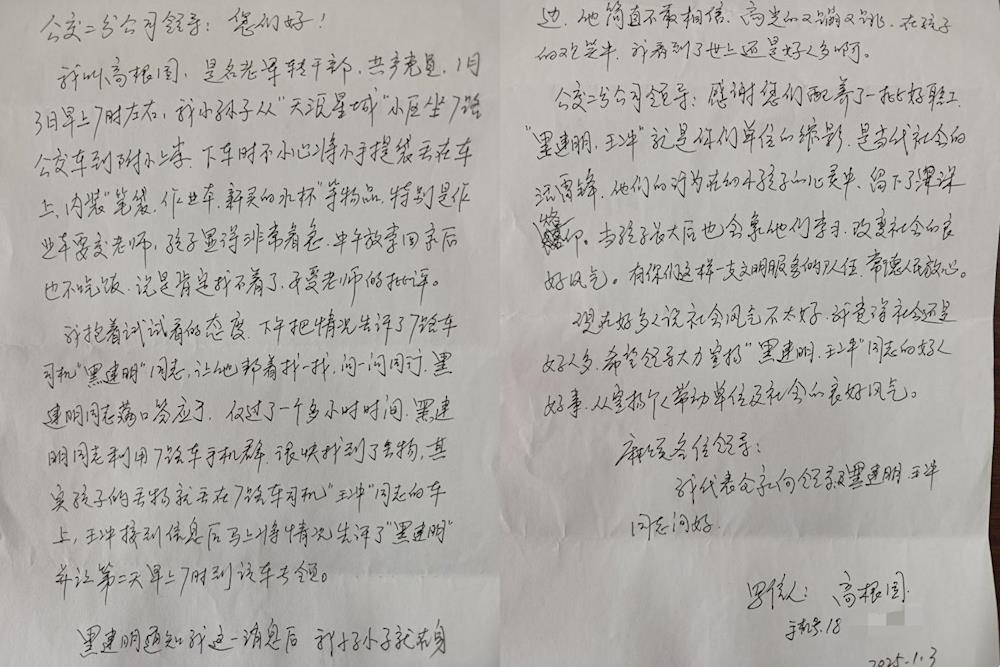 公交二分公司领导：您们好！
我叫高根固，是名老军转干部，共产党员，1月
3日早上7时左右，我小孙子从“天源星城”小区坐7路
公交车到附小上学。下车时不小心将小手提袋丢在车
上，内装“笔袋、作业本、新买的水杯”等物品，特别是作
业本要交老师，孩子显得非常着急，中午放学回家后
也不吃饭，说是肯定找不着了，要受老师的批评。
我抱着试试看的态度，下午把情况告诉了7路车
司机“黑建明”同志，让他帮着找一找，问一问同行，黑
建明同志满口答应了，仅过了一个多小时时间，黑建
明同志利用7路车手机群，很快找到了丢物，其
实孩子的丢物就丢在7路车司机“王冲”同志的车
上，王冲接到信息后马上将情况告诉了“黑建明”
并让第二天早上7时到该车去领。
黑建明通知我这一消息后 我小孙子就在身
边，他简直不敢相信，高兴的又蹦又跳，在孩子
的欢笑中，我看到了世上还是好人多啊。
公交二分公司领导：感谢您们配养了一批好职工，
“黑建明，王冲”就是你们单位的缩影，是当代社会的
活雷锋，他们的行为在幼小孩子的心灵中，留下了深深
烙印。当孩子长大后也会象他们学习，改变社会的良
好风气。有你们这样一支文明服务的队伍，常德人民放心。
现在好多人说社会风气不太好，我觉得社会还是
好人多，希望领导大力宣扬“黑建明，王冲”同志的好人
好事，从宣扬个人带动单位及社会的良好风气。
麻烦各位领导：
我代表全家向领导及黑建明 王冲
同志问好。
写信人：高根固
手机号.18
2025.1.3